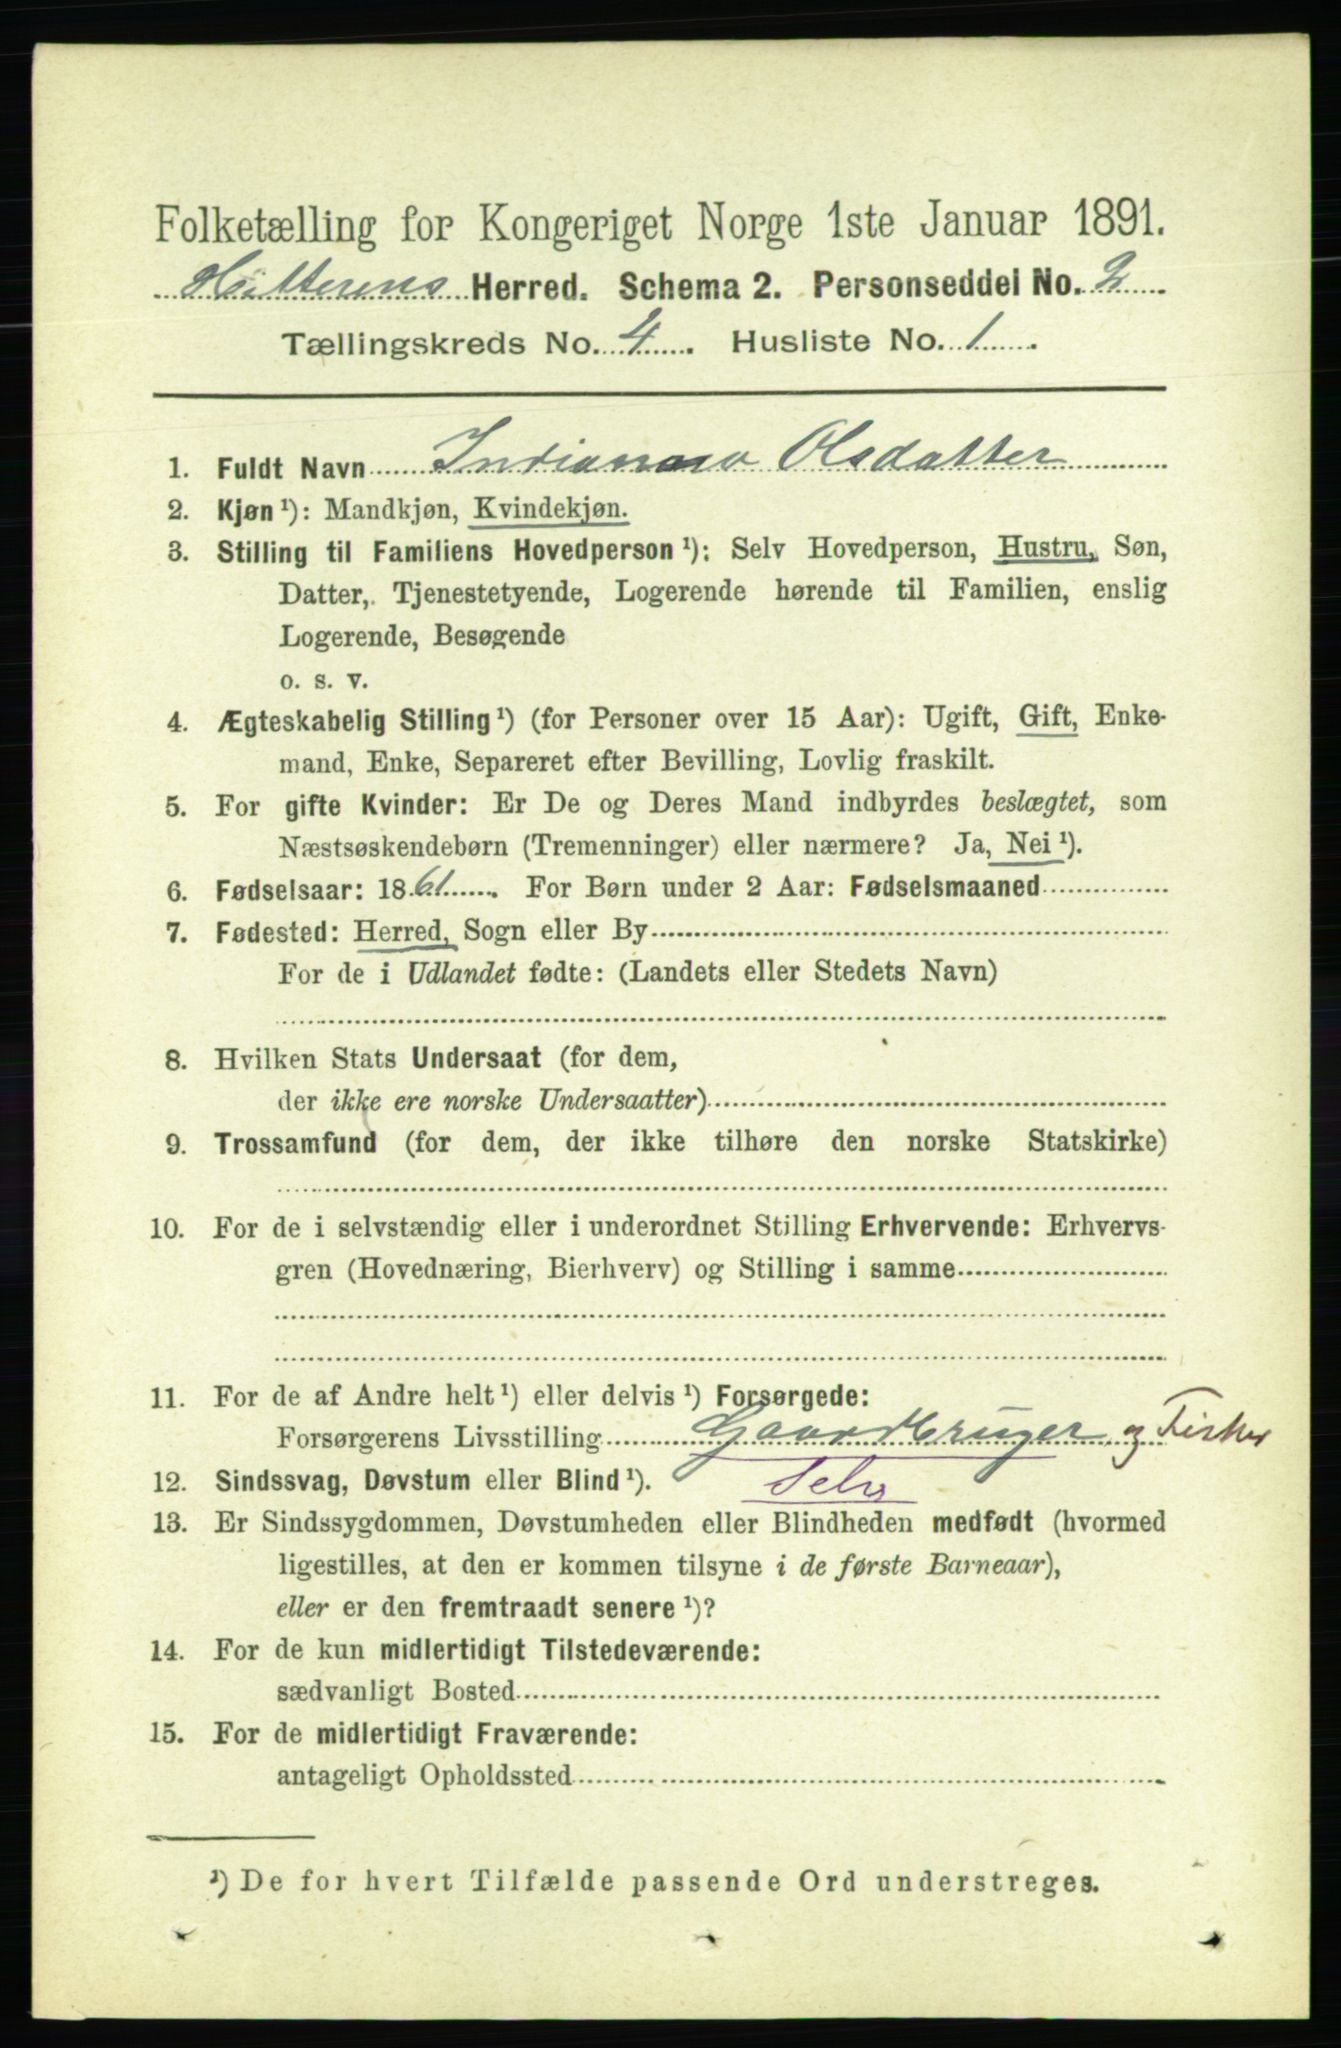 Folketælling for Kongeriget Norge 1ste Januar 1891.
Hitterens Herred. Schema 2. Personseddel No. 2
Tællingskreds No. 4. Husliste No. 1.
1. Fuldt Navn Indianna Olsdatter
2. Kjøn ¹): Mandkjøn, Kvindekjøn.
3. Stilling til Familiens Hovedperson ¹): Selv Hovedperson, Hustru, Søn,
Datter, Tjenestetyende, Logerende hørende til Familien, enslig
Logerende, Besøgende
o. s. v.
4. Ægteskabelig Stilling ¹) (for Personer over 15 Aar): Ugift, Gift, Enke-
mand, Enke, Separeret efter Bevilling, Lovlig fraskilt.
5. For gifte Kvinder: Er De og Deres Mand indbyrdes beslægtet, som
Næstsøskendebørn (Tremenninger) eller nærmere? Ja, Nei ¹).
6. Fødselsaar: 1861. For Børn under 2 Aar: Fødselsmaaned
7. Fødested: Herred, Sogn eller By
For de i Udlandet fødte: (Landets eller Stedets Navn)
8. Hvilken Stats Undersaat (for dem,
der ikke ere norske Undersaatter)
9. Trossamfund (for dem, der ikke tilhøre den norske Statskirke)
10. For de i selvstændig eller i underordnet Stilling Erhvervende: Erhvervs-
gren (Hovednæring, Bierhverv) og Stilling i samme
11. For de af Andre helt ¹) eller delvis ¹) Forsørgede:
Forsørgerens Livsstilling Gaardbruger og Fisker
12. Sindssvag, Døvstum eller Blind ¹). Selv
13. Er Sindssygdommen, Døvstumheden eller Blindheden medfødt (hvormed
ligestilles, at den er kommen tilsyne i de første Barneaar),
eller er den fremtraadt senere ¹)?
14. For de kun midlertidigt Tilstedeværende:
sædvanligt Bosted
15. For de midlertidigt Fraværende:
antageligt Opholdssted
¹) De for hvert Tilfælde passende Ord understreges.